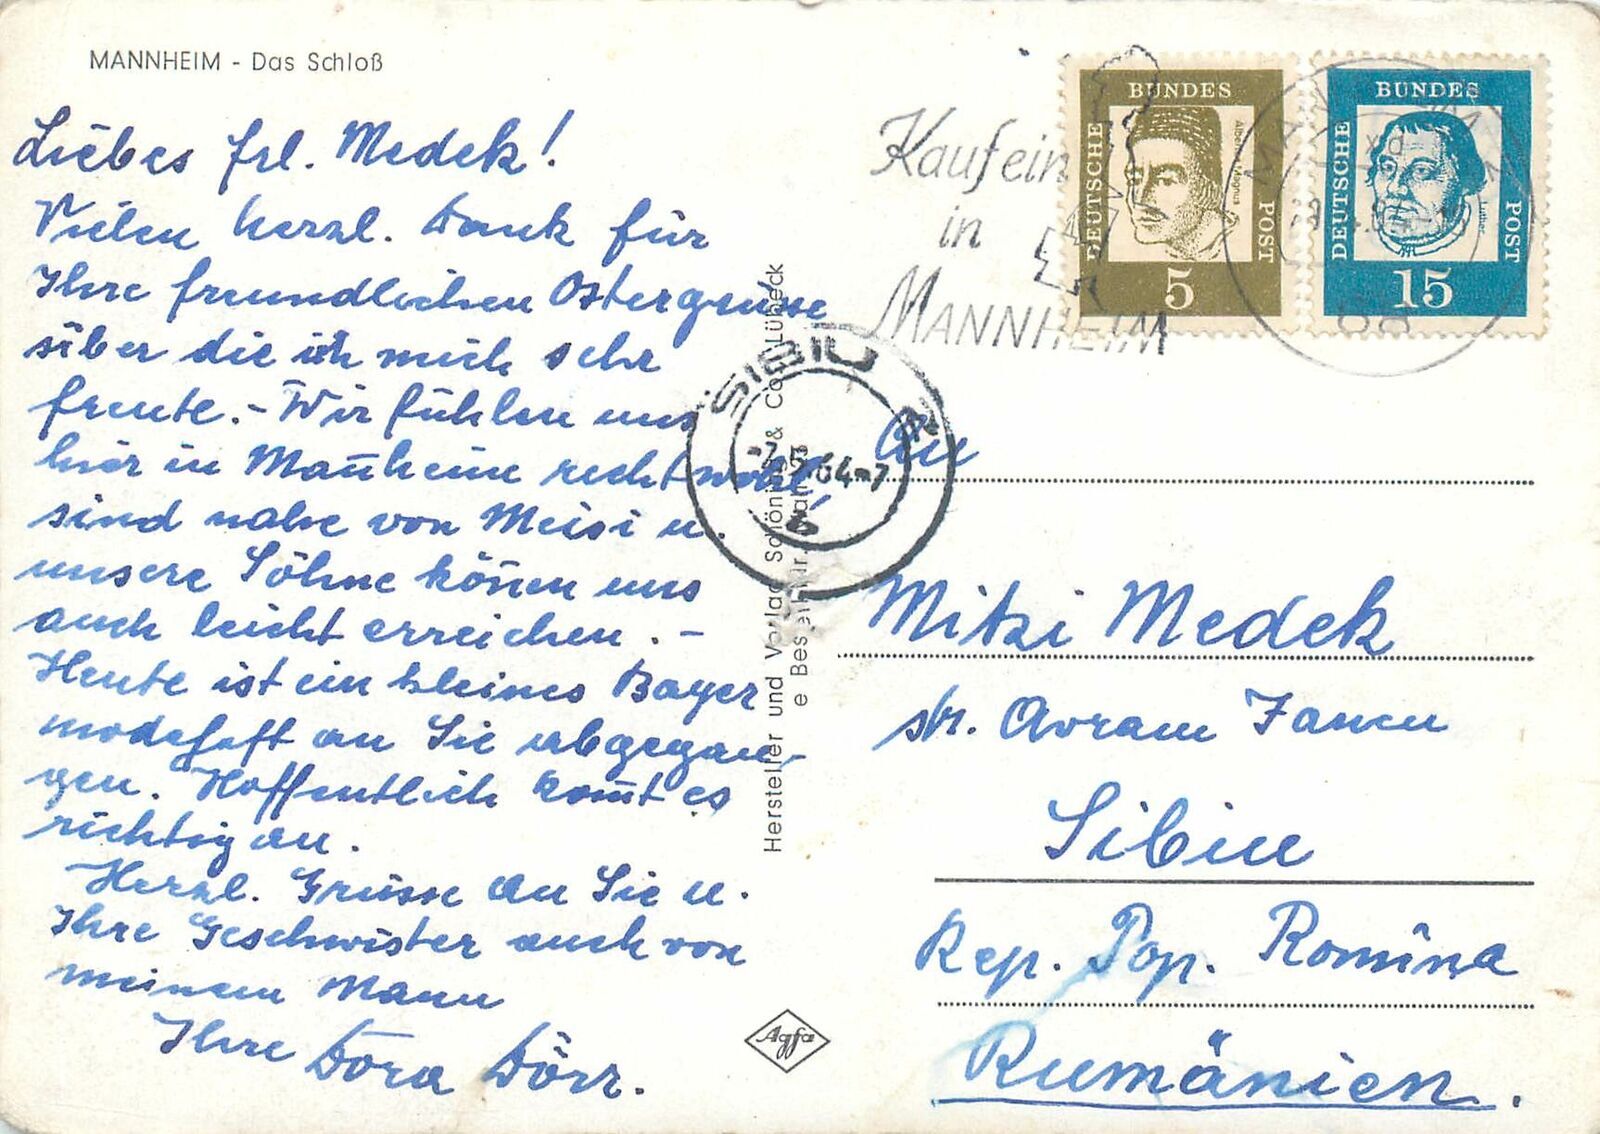 MANNHEIM - Das Schloß
Liebes Frl. Medek!
Vielen herzl. Dank für
Ihre freundlichen Ostergrüsse
über die ich mich sehr
freute. - Wir fühlen uns
hier in Mannheim recht wohl,
sind nahe von Meisi u.
unsere Söhne können uns
auch leicht erreichen. -
Heute ist ein kleines Bayer
modehaft an Sie abgegan-
gen. Hoffentlich kommt es
richtig an.
Herzl. Grüsse an Sie u.
Ihre Geschwister auch von
meinem Mann
Ihre Dora Dörr.
Hersteller und Verlag Schöning & Co. Lübeck
Agfa
Kauf ein
in
MANNHEIM
DEUTSCHE BUNDES POST
Albertus Magnus
5
DEUTSCHE BUNDES POST
Luther
15
SIBIU
-7.5.64-7
An
Mitzi Medek
str. Avram Iancu
Sibiu
Rep. Pop. Romîna
Rumänien.